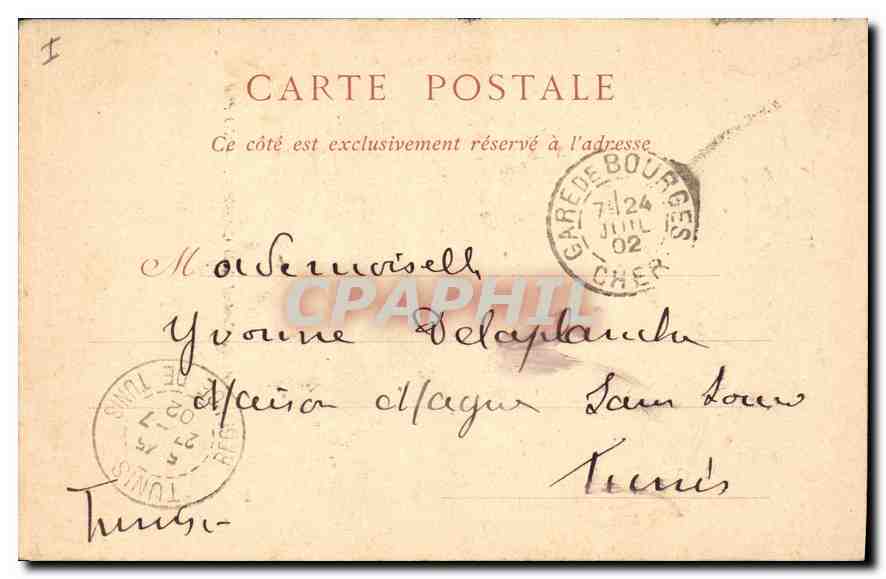 I
CARTE POSTALE
Ce côté est exclusivement réservé à l'adresse
GARE DE BOURGES
7 24
JUIL
02
CHER
Mademoiselle
CPAPHIL
Yvonne Delaplanche
Maison Magne
Tunis
Tunisie
TUNIS
REGENCE DE TUNIS
5 15
27 -7
02